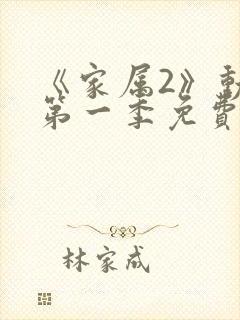 《家属2》動
第一季免費
林家成